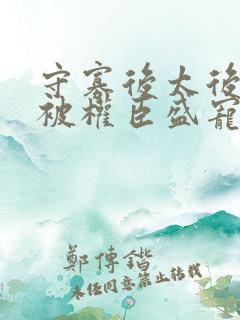 守寡後太後
被權臣盛寵
鄭傳鍇
未經同意禁止轉載